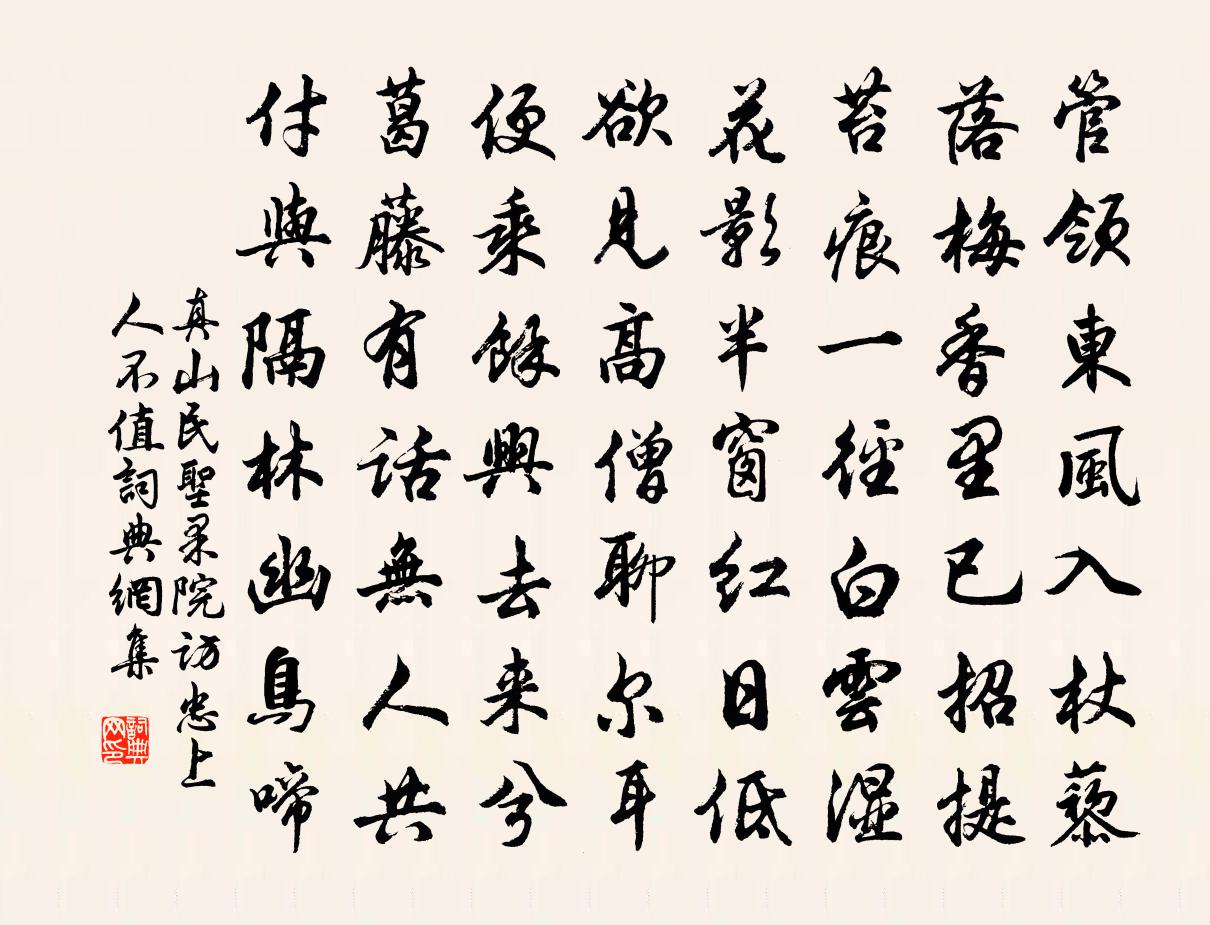 管領東風入杖藜
落梅香里已招提
苔痕一徑白雲濕
花影半窗紅日低
欲見高僧聊尔耳
便乘餘興去来兮
葛藤有話無人共
付與隔林幽鳥啼
真山民聖果院訪忠上
人不值詞典網集
詞典
网印